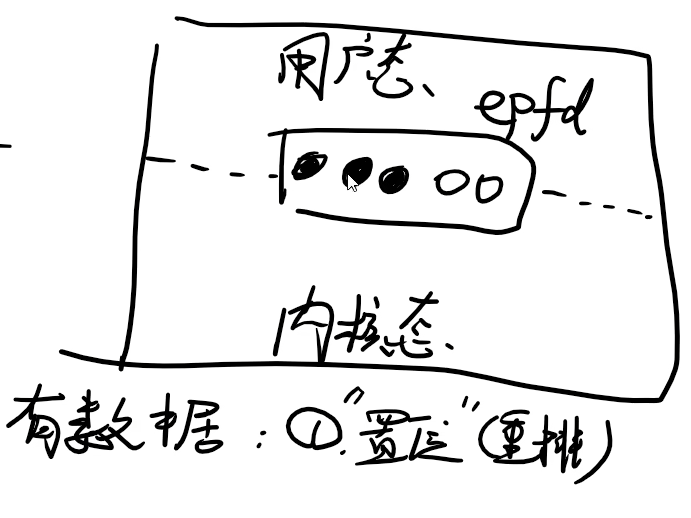 用户态、
epfd
内核态、
有数据：①.“置位”(重排)